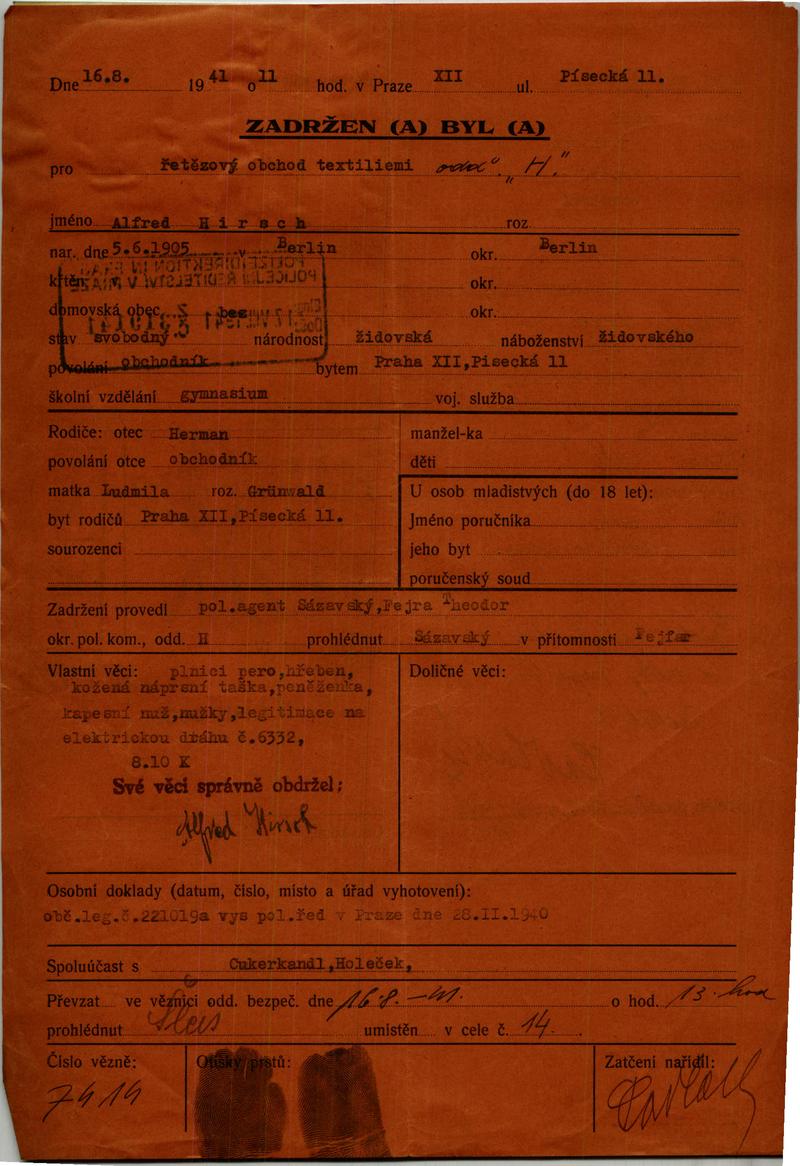 Dne 16.8. 19 41 o 11 hod. v Praze XII ul. Písecká 11.
ZADRŽEN (A) BYL (A)
pro řetězový obchod textiliemi odd. "H"
jméno Alfred Hirsch roz.
nar. dne 5.6.1905 v Berlin okr. Berlin
POLIZEIDIREKTION IN PRAG
POLICEJNÍ ŘEDITELSTVÍ V PRAZE
křtěn v okr.
domovská obec bez okr.
stav svobodný národnost židovská náboženství židovského
povolání obchodník bytem Praha XII,Písecká 11
školní vzdělání gymnasium voj. služba
Rodiče: otec Herman manžel-ka
povolání otce obchodník děti
matka Ludmila roz. Grünwald U osob mladistvých (do 18 let):
byt rodičů Praha XII,Písecká 11. Jméno poručníka
sourozenci jeho byt
poručenský soud
Zadržení provedl pol.agent Sázavský,Fejra Theodor
okr. pol. kom., odd. H prohlédnut Sázavský v přítomnosti Fejfar
Vlastní věci: plnící pero,hřeben, Doličné věci:
kožená náprsní taška,peněženka,
kapesní nuž,nužky,legitimace na
elektrickou dráhu č.6332,
8.10 K
Své věci správně obdržel:
Alfred Hirsch
Osobní doklady (datum, číslo, místo a úřad vyhotovení):
obč.leg.č.221019a vys pol.řed v Praze dne 28.II.1940
Spoluúčast s Cukerkandl,Holeček,
Převzat ve věznici odd. bezpeč. dne 16.8.-41. o hod. 13. hod
prohlédnut umístěn v cele č. 14.
Číslo vězně: Otisky prstů: Zatčení nařídil:
7414